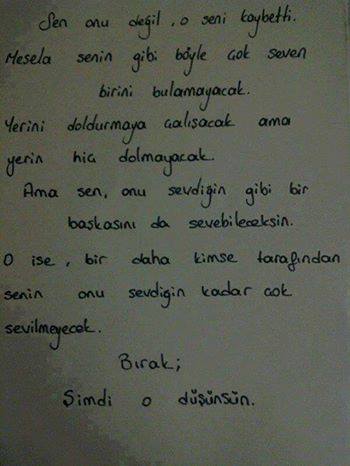 Sen onu değil, o seni kaybetti.
Mesela senin gibi böyle çok seven
birini bulamayacak.
Yerini doldurmaya çalışacak ama
yerin hiç dolmayacak.
Ama sen, onu sevdiğin gibi bir
başkasını da sevebileceksin.
O ise, bir daha kimse tarafından
senin onu sevdiğin kadar çok
sevilmeyecek.
Bırak;
Şimdi o düşünsün.